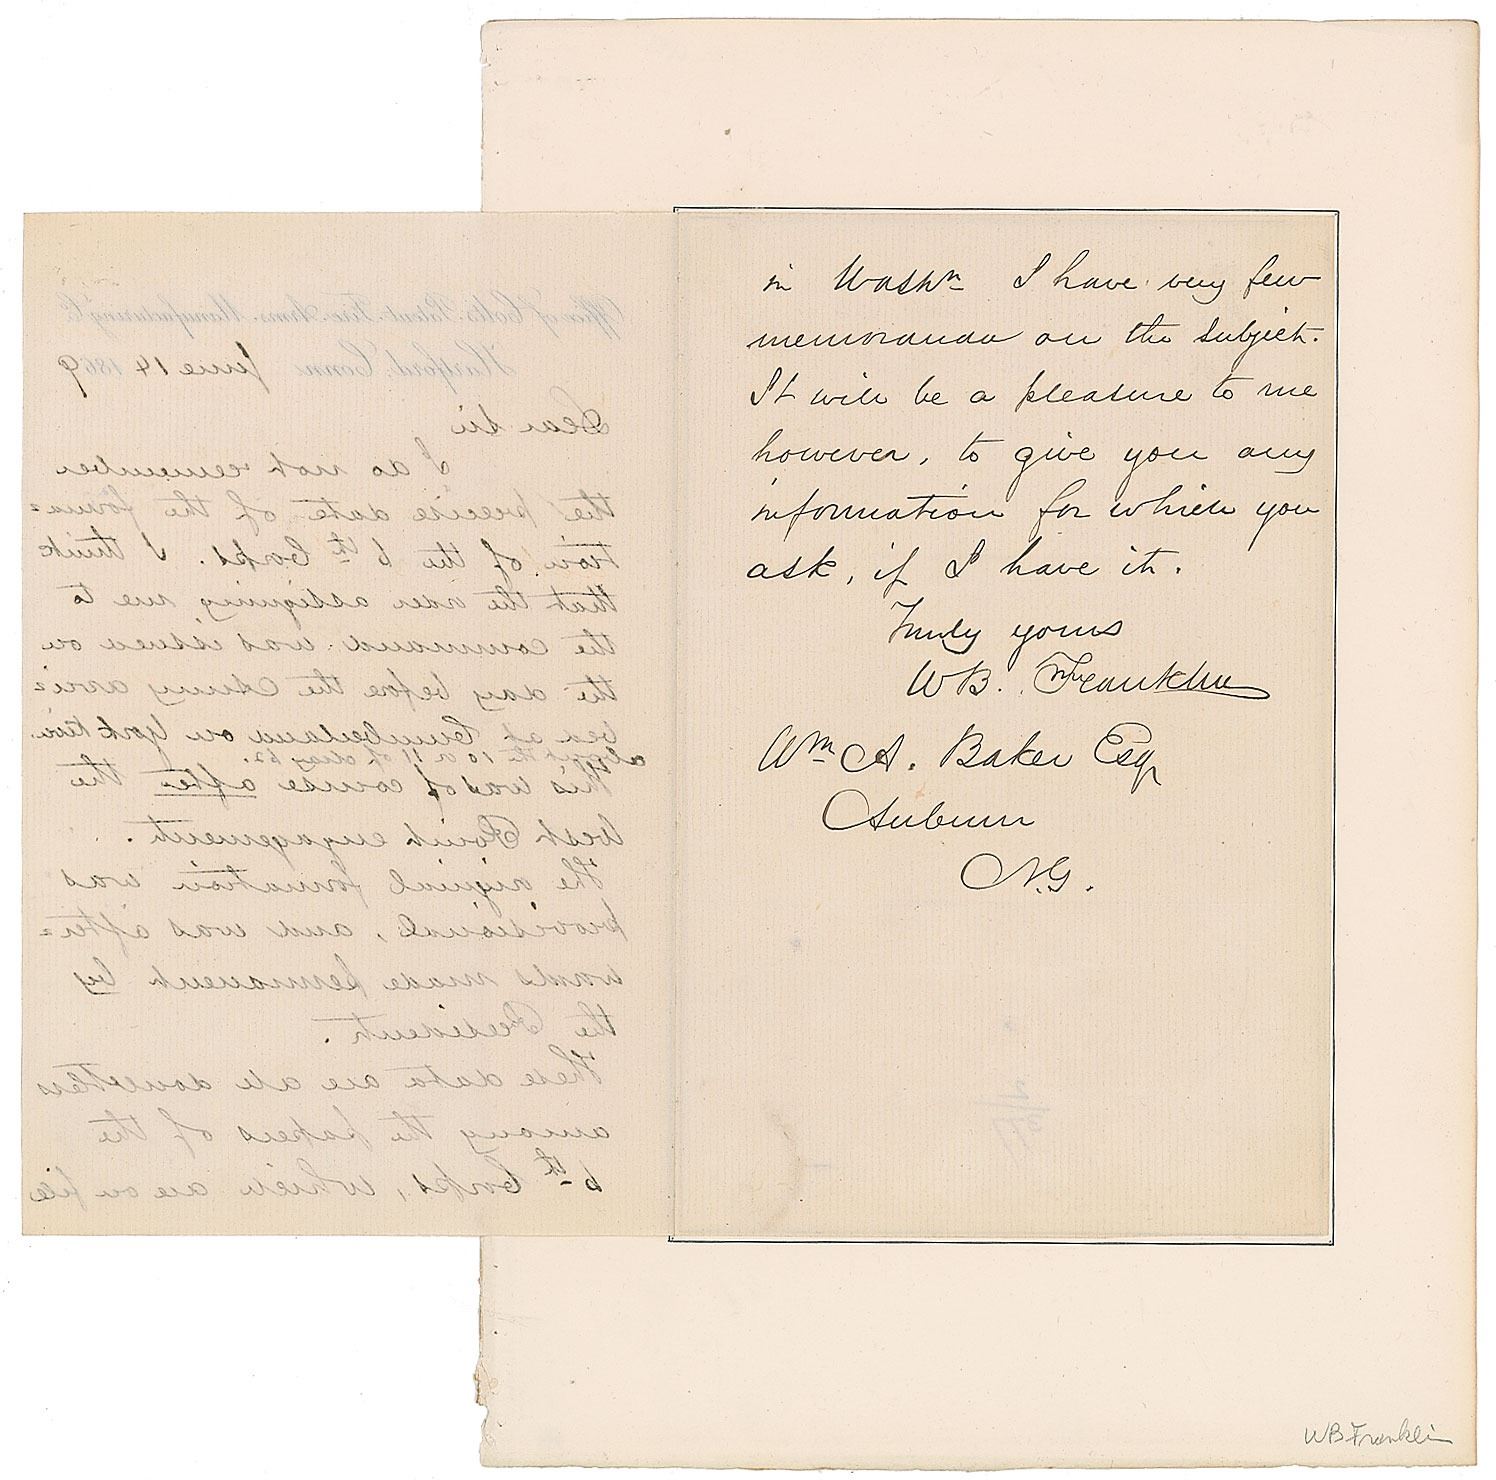 Office of Colt's Patent Fire Arms Manufacturing Co.
Hartford, Conn. June 14 1869
Dear Sir
I do not remember
the precise date of the forma=
tion of the 6th Corps. I think
that the order assigning me to
the command was issued on
the day before the Army arri=
ved at Cumberland on York River.
about the 10 or 11 of May 62.
This was of course after the
West Point engagement.
The original formation was
provisional, and was after=
wards made permanent by
the President.
These data are all doubtless
among the papers of the
6th Corps, which are on file
in Washn I have very few
memoranda on the subject.
It will be a pleasure to me
however, to give you any
information for which you
ask, if I have it.
Truly yours
WB. Franklin
Wm A. Baker Esq
Auburn
N.Y.
WB Franklin